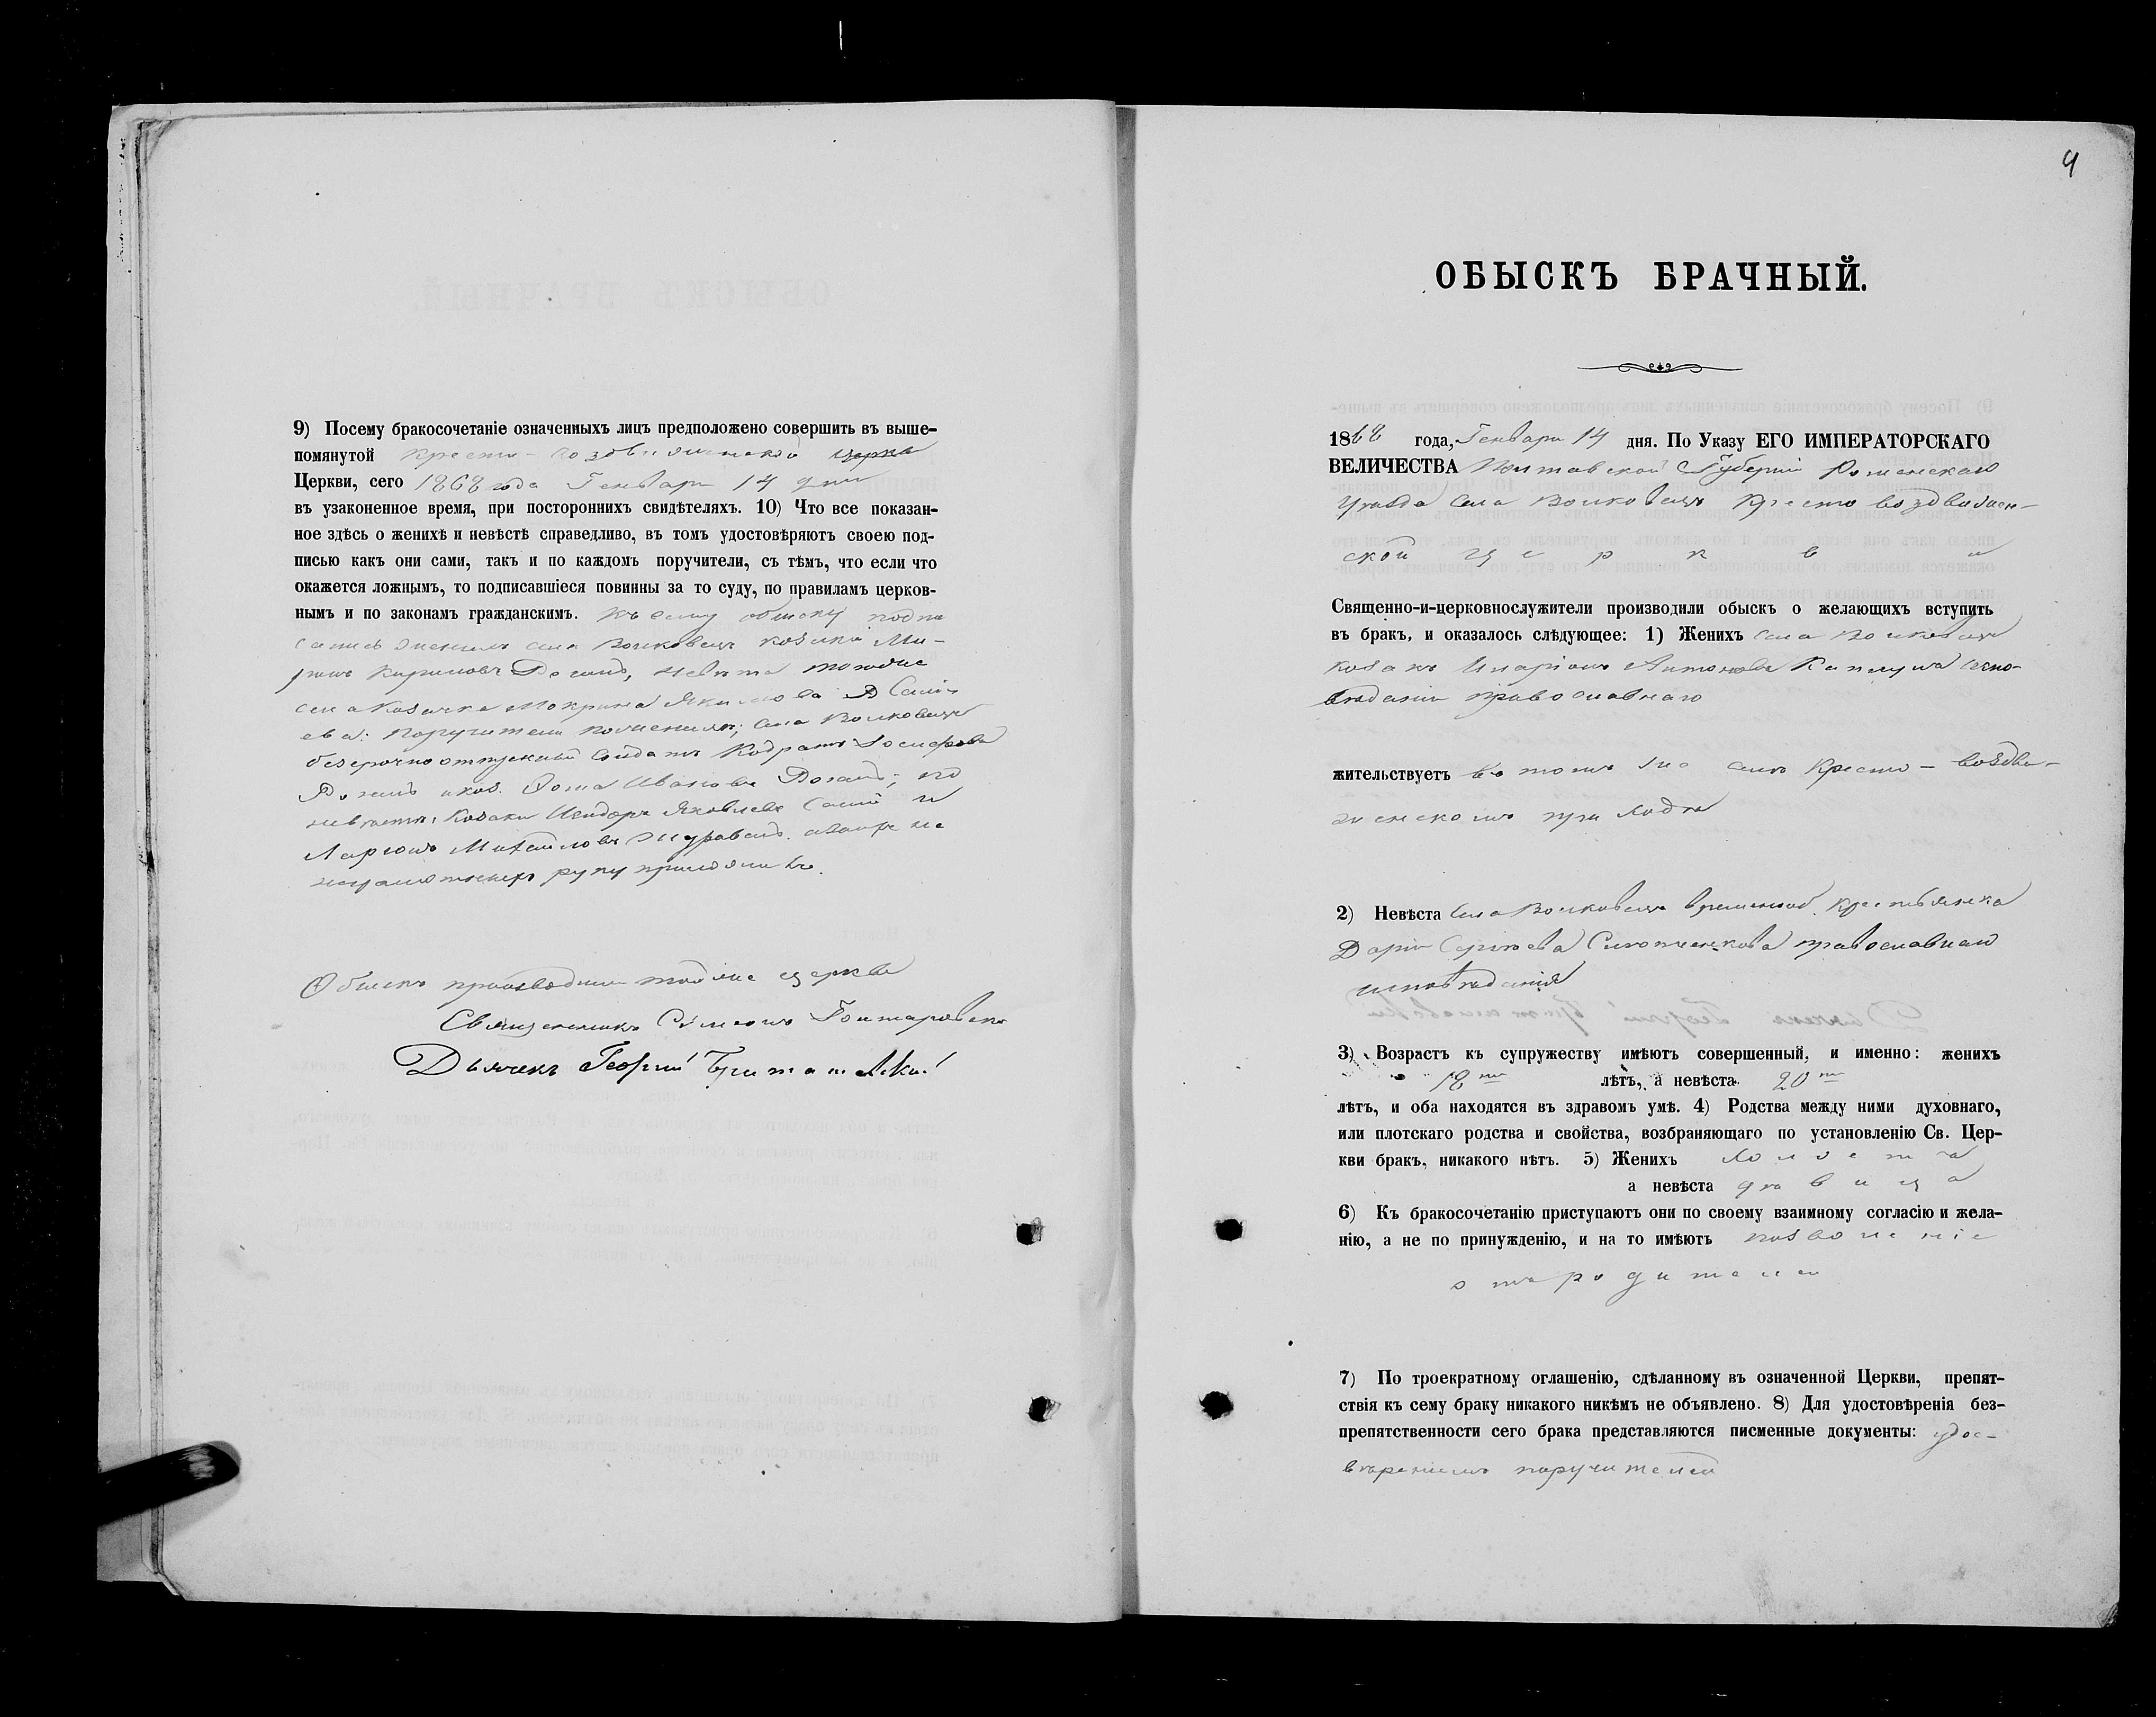 9) Посему бракосочетаніе означенныхъ лицъ предположено совершить въ выше-
помянутой Кресто-Воздвиженской церкви
Церкви, сего 1868 года Генваря 14 дня
въ узаконенное время, при постороннихъ свидѣтеляхъ. 10) Что все показан-
ное здѣсь о женихѣ и невѣстѣ справедливо, въ томъ удостовѣряютъ своею под-
писью какъ они сами, такъ и по каждомъ поручители, съ тѣмъ, что если что
окажется ложнымъ, то подписавшіеся повинны за то суду, по правиламъ церков-
нымъ и по законамъ гражданскимъ. Къ сему обыску подпи
сались женихъ села Волковецъ козакъ
Кириловъ невѣста тогоже
села Козачка Мокрина Якимова
Поручители по женихѣ; села Волковецъ
безсрочноотпускный солдатъ Кодратъ Іосифовъ
и коз. Ѳома Ивановъ по
невѣстѣ: Козаки Исидоръ Яковлевъ и
Ларіонъ Михайловъ Журавель. а вмѣсто не
неграмотныхъ руку приложилъ.
Обыскъ производили тойже церкви
Священникъ Сѵмеонъ
Дьячекъ Георгій
4
ОБЫСКЪ БРАЧНЫЙ.
1868 года, Генваря 14 дня. По Указу ЕГО ИМПЕРАТОРСКАГО
ВЕЛИЧЕСТВА Полтавской Губерніи Роменскаго
Уѣзда села Волковецъ Кресто воздвижен-
ской церкви
Священно-и-церковнослужители производили обыскъ о желающихъ вступить
въ бракъ, и оказалось слѣдующее: 1) Женихъ села Волковецъ
козакъ Иларіонъ Антоновъ испо-
вѣданія православнаго
жительствуетъ въ томъ же селѣ Кресто-воздви-
женскомъ приходѣ
2) Невѣста села Волковецъ временнооб. крестьянка
Дарія Сергѣева православнаго
исповѣданія
3) Возрастъ къ супружеству имѣютъ совершенный, и именно: женихъ
18ть лѣтъ, а невѣста 20ть
лѣтъ, и оба находятся въ здравомъ умѣ. 4) Родства между ними духовнаго,
или плотскаго родства и свойства, возбраняющаго по установленію Св. Цер-
кви бракъ, никакого нѣтъ. 5) Женихъ холостъ
а невѣста дѣвица
6) Къ бракосочетанію приступаютъ они по своему взаимному согласію и жела-
нію, а не по принужденію, и на то имѣютъ позволеніе
отъ родителей
7) По троекратному оглашенію, сдѣланному въ означенной Церкви, препят-
ствія къ сему браку никакого никѣмъ не объявлено. 8) Для удостовѣренія без-
препятственности сего брака представляются писменные документы: удос-
вѣреніемъ поручителей